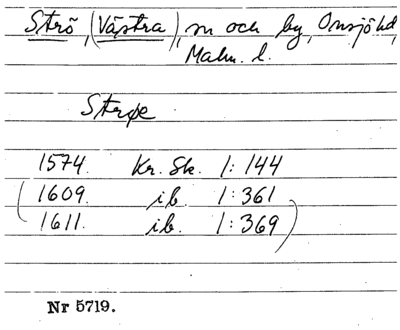 Strö, (Västra), sn och by, Onsjö hd,
Malm. l.
Strøe
1574. Kr. Sk. 1: 144
(1609. ib. 1: 361
1611. ib. 1: 369)
Nr 5719.